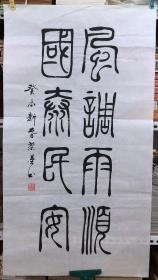 風調雨順
國泰民安
癸未新春